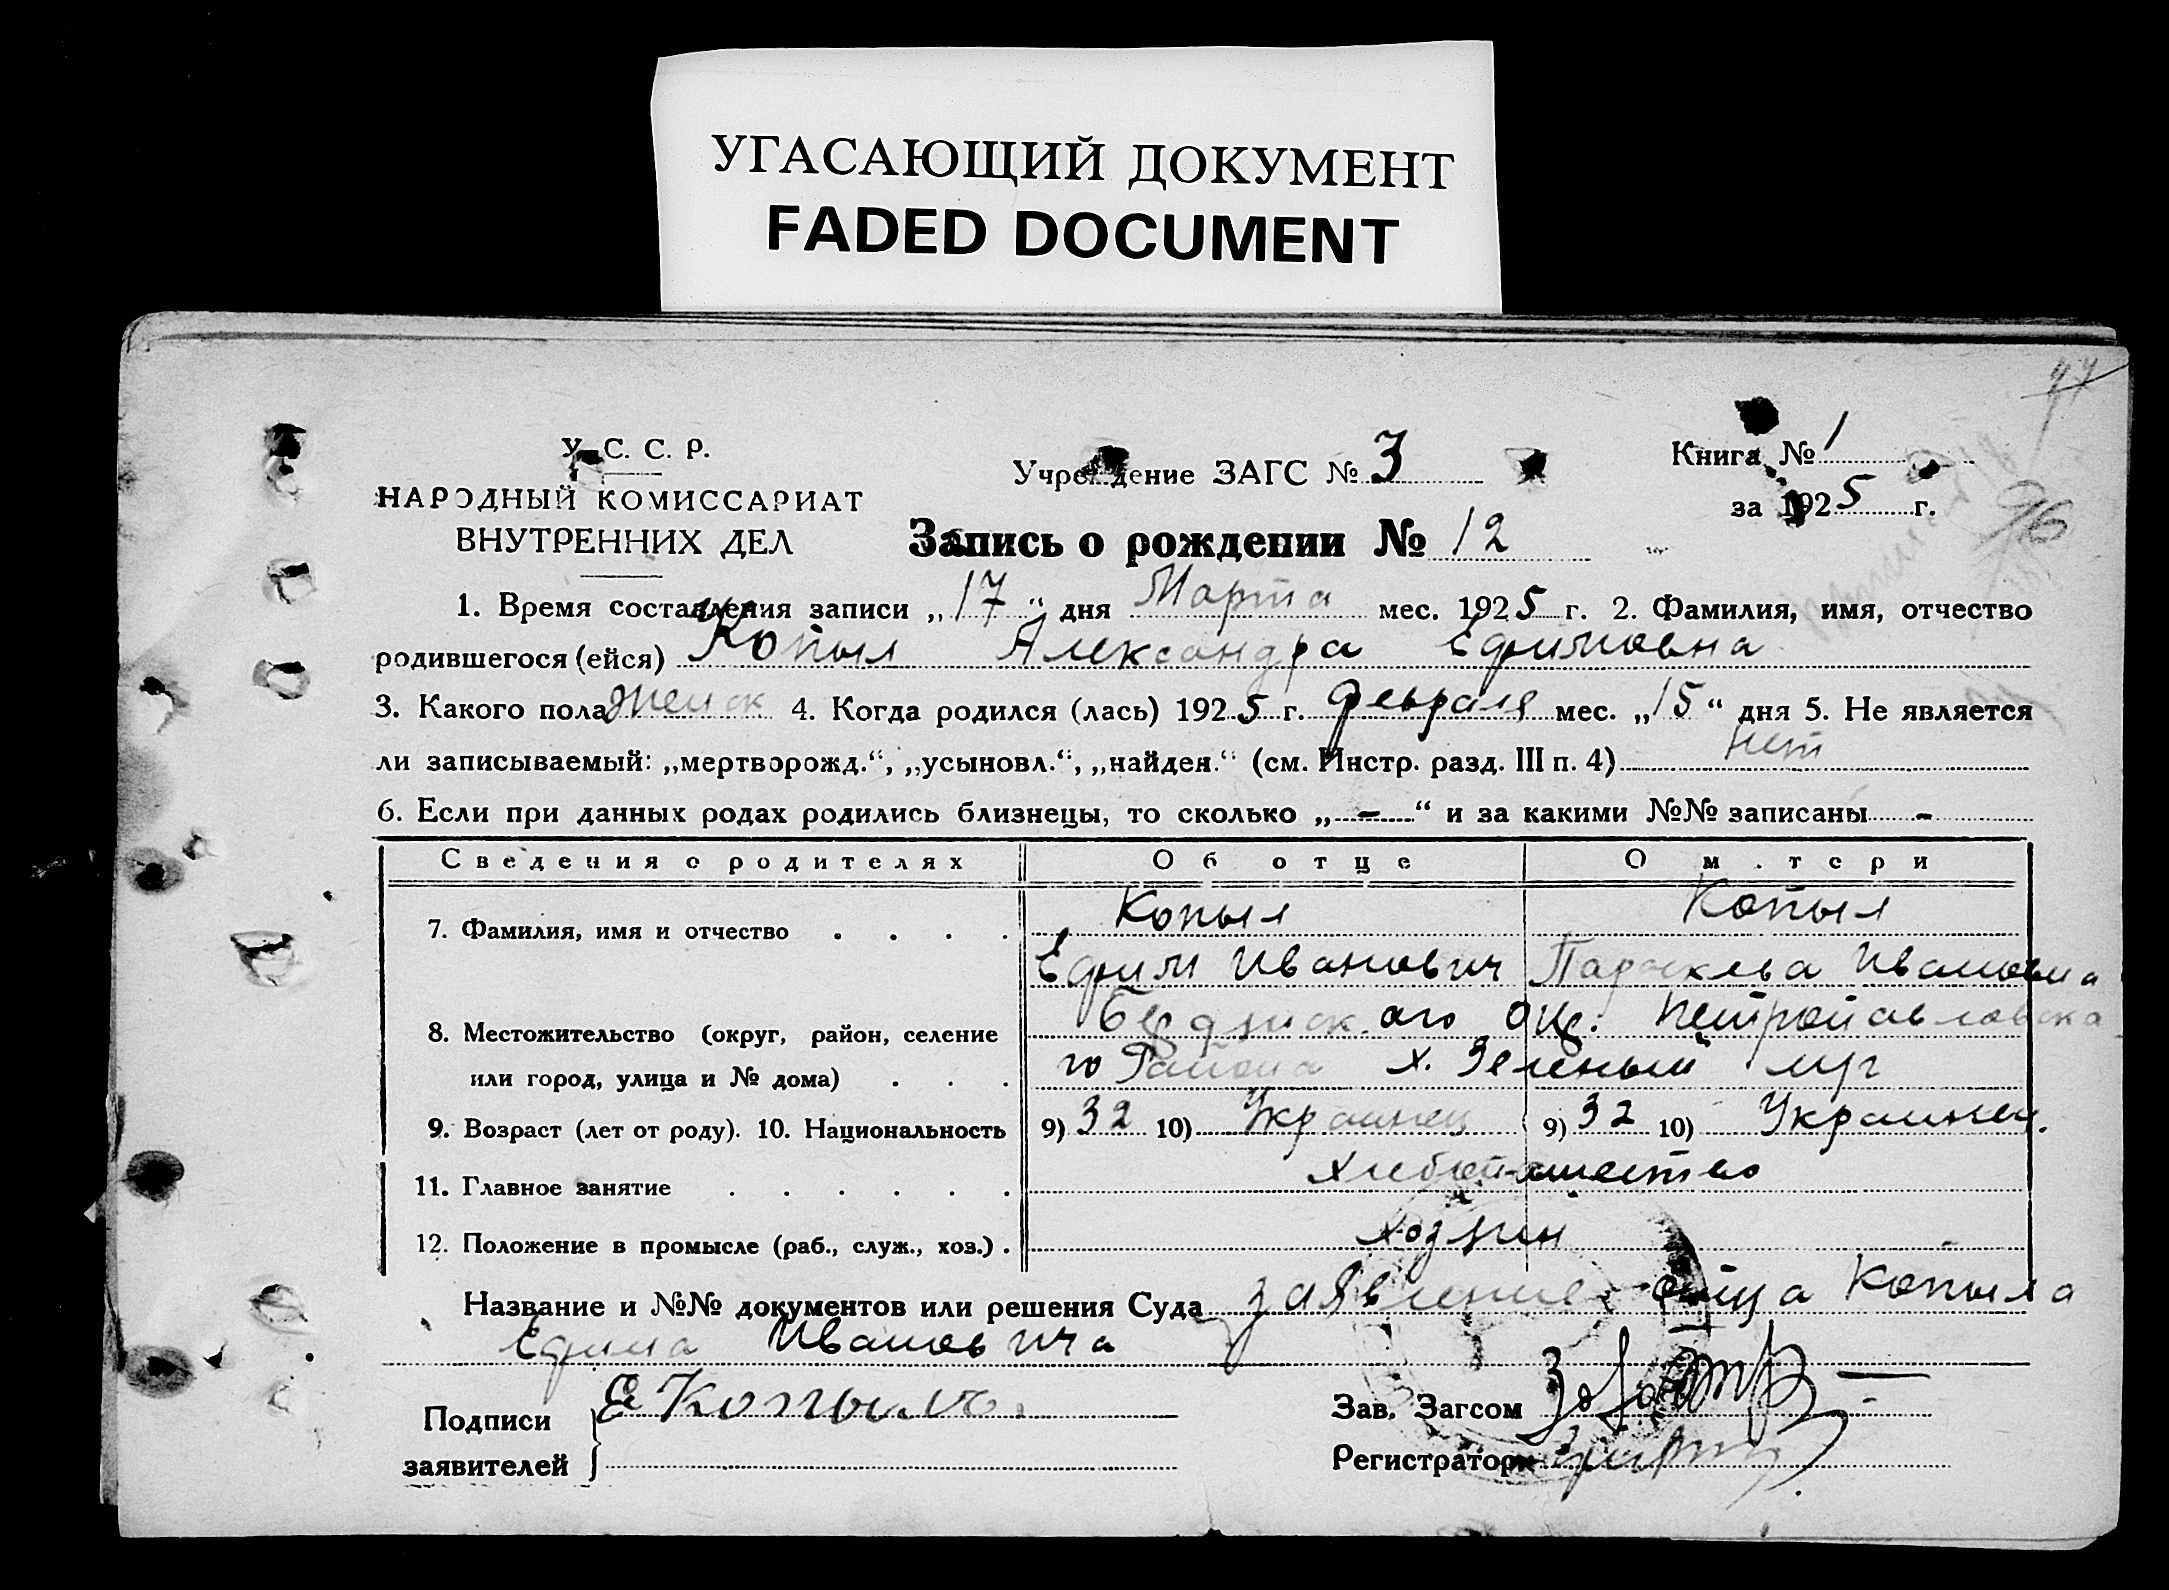 УГАСАЮЩИЙ ДОКУМЕНТ
FADED DOCUMENT
97
У. С. С. Р.
НАРОДНЫЙ КОМИССАРИАТ
ВНУТРЕННИХ ДЕЛ
Учреждение ЗАГС № 3
Книга № 1
за 1925 г.
96
Запись о рождении № 12
1. Время составления записи „17“ дня Марта мес. 1925 г. 2. Фамилия, имя, отчество
родившегося (ейся) Копыл Александра Ефимовна
3. Какого пола женск 4. Когда родился (лась) 1925 г. февраля мес. „15“ дня 5. Не является
ли записываемый: „мертворожд.“, „усыновл.“, „найден.“ (см. Инстр. разд. III п. 4) нет
6. Если при данных родах родились близнецы, то сколько „-“ и за какими №№ записаны -
Сведения о родителях Об отце О матери
7. Фамилия, имя и отчество . . . . Копыл Копыл
Ефим Иванович Параскева Ивановна
8. Местожительство (округ, район, селение Бердянского окр. Петропавловско
или город, улица и № дома) . . . го Района х. Зеленый луг
9. Возраст (лет от роду). 10. Национальность 9) 32 10) Украинец 9) 32 10) Украинец.
11. Главное занятие . . . . . . хлебопашество
12. Положение в промысле (раб., служ., хоз.) . хозяин
Название и №№ документов или решения Суда заявление отца Копыла
Ефима Ивановича
Подписи Е Копыл
заявителей
Зав. Загсом
Регистратор